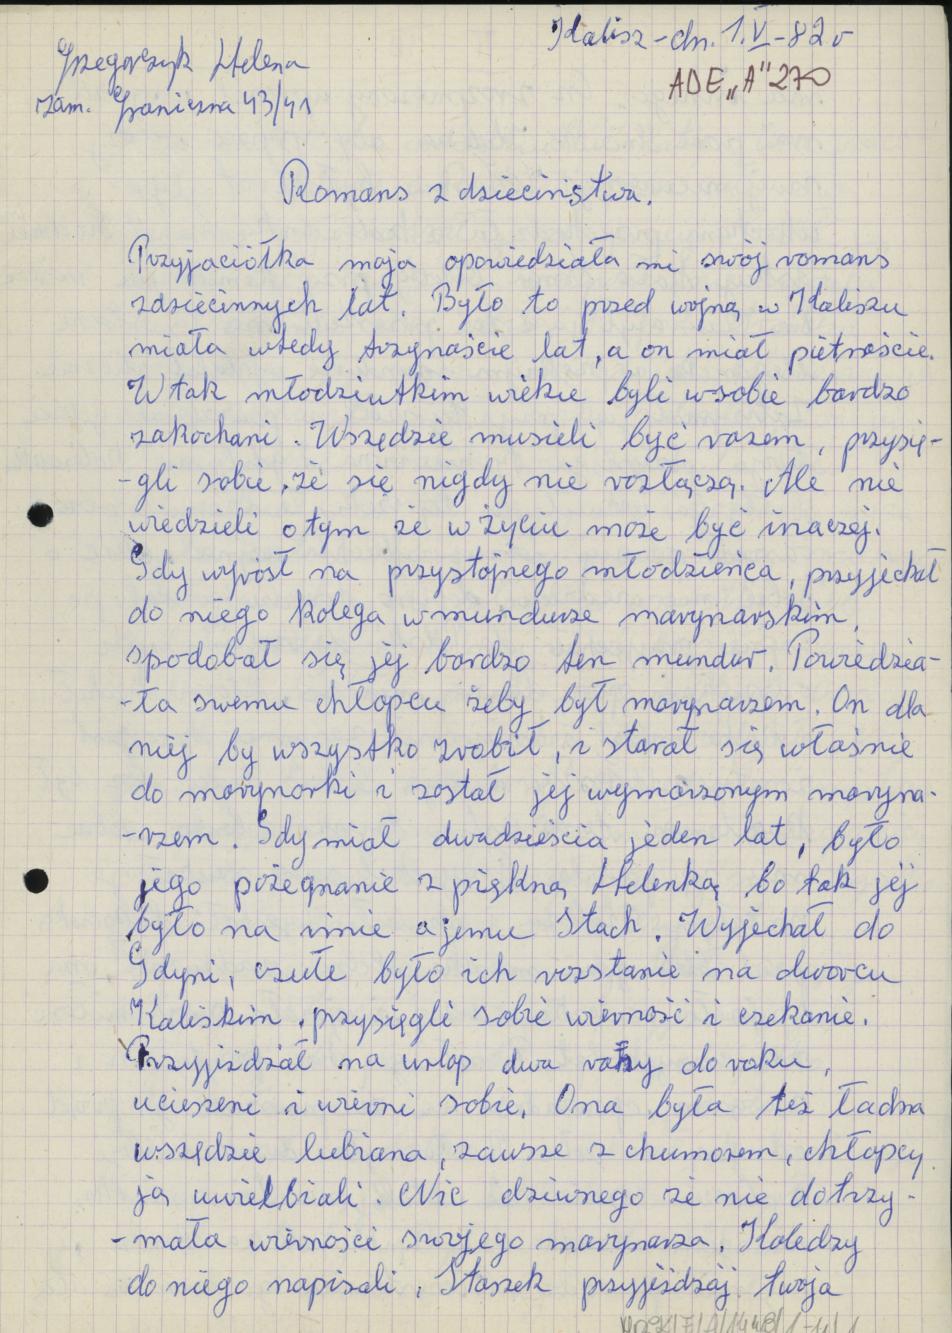 Kalisz - dn. 1.VI-82 r
ADE „A" 270
Grzegorczyk Helena
zam. Graniczna 43/41
Romans z dzieciństwa.
Przyjaciółka moja opowiedziała mi swój romans
z dziecinnych lat. Było to przed wojną w Kaliszu
miała wtedy trzynaście lat, a on miał pietnaście.
W tak młodziutkim wieku byli w sobie bardzo
zakochani. Wszędzie musieli być razem, przysię-
-gli sobie, że się nigdy nie rozłączą. Ale nie
wiedzieli o tym że w życiu może być inaczej.
Gdy wyrósł na przystojnego młodzieńca, przyjechał
do niego kolega w mundurze marynarskim,
spodobał się jej bardzo ten mundur. Powiedzia-
-ła swemu chłopcu żeby był marynarzem. On dla
niej by wszystko zrobił, i starał się właśnie
do marynarki i został jej wymarzonym maryna-
-rzem. Gdy miał dwadzieścia jeden lat, było
jego pożegnanie z piękną Helenką bo tak jej
było na imie a jemu Stach. Wyjechał do
Gdyni, czułe było ich rozstanie na dworcu
Kaliskim, przysięgli sobie wierność i czekanie.
Przyjeżdżał na urlop dwa razy do roku,
ucieszeni i wierni sobie. Ona była też ładna
wszędzie lubiana, zawsze z chumorem, chłopcy
ją uwielbiali. Nic dziwnego że nie dotrzy-
-mała wierności swojego marynarza. Koledzy
do niego napisali, Staszek przyjeżdżaj twoja